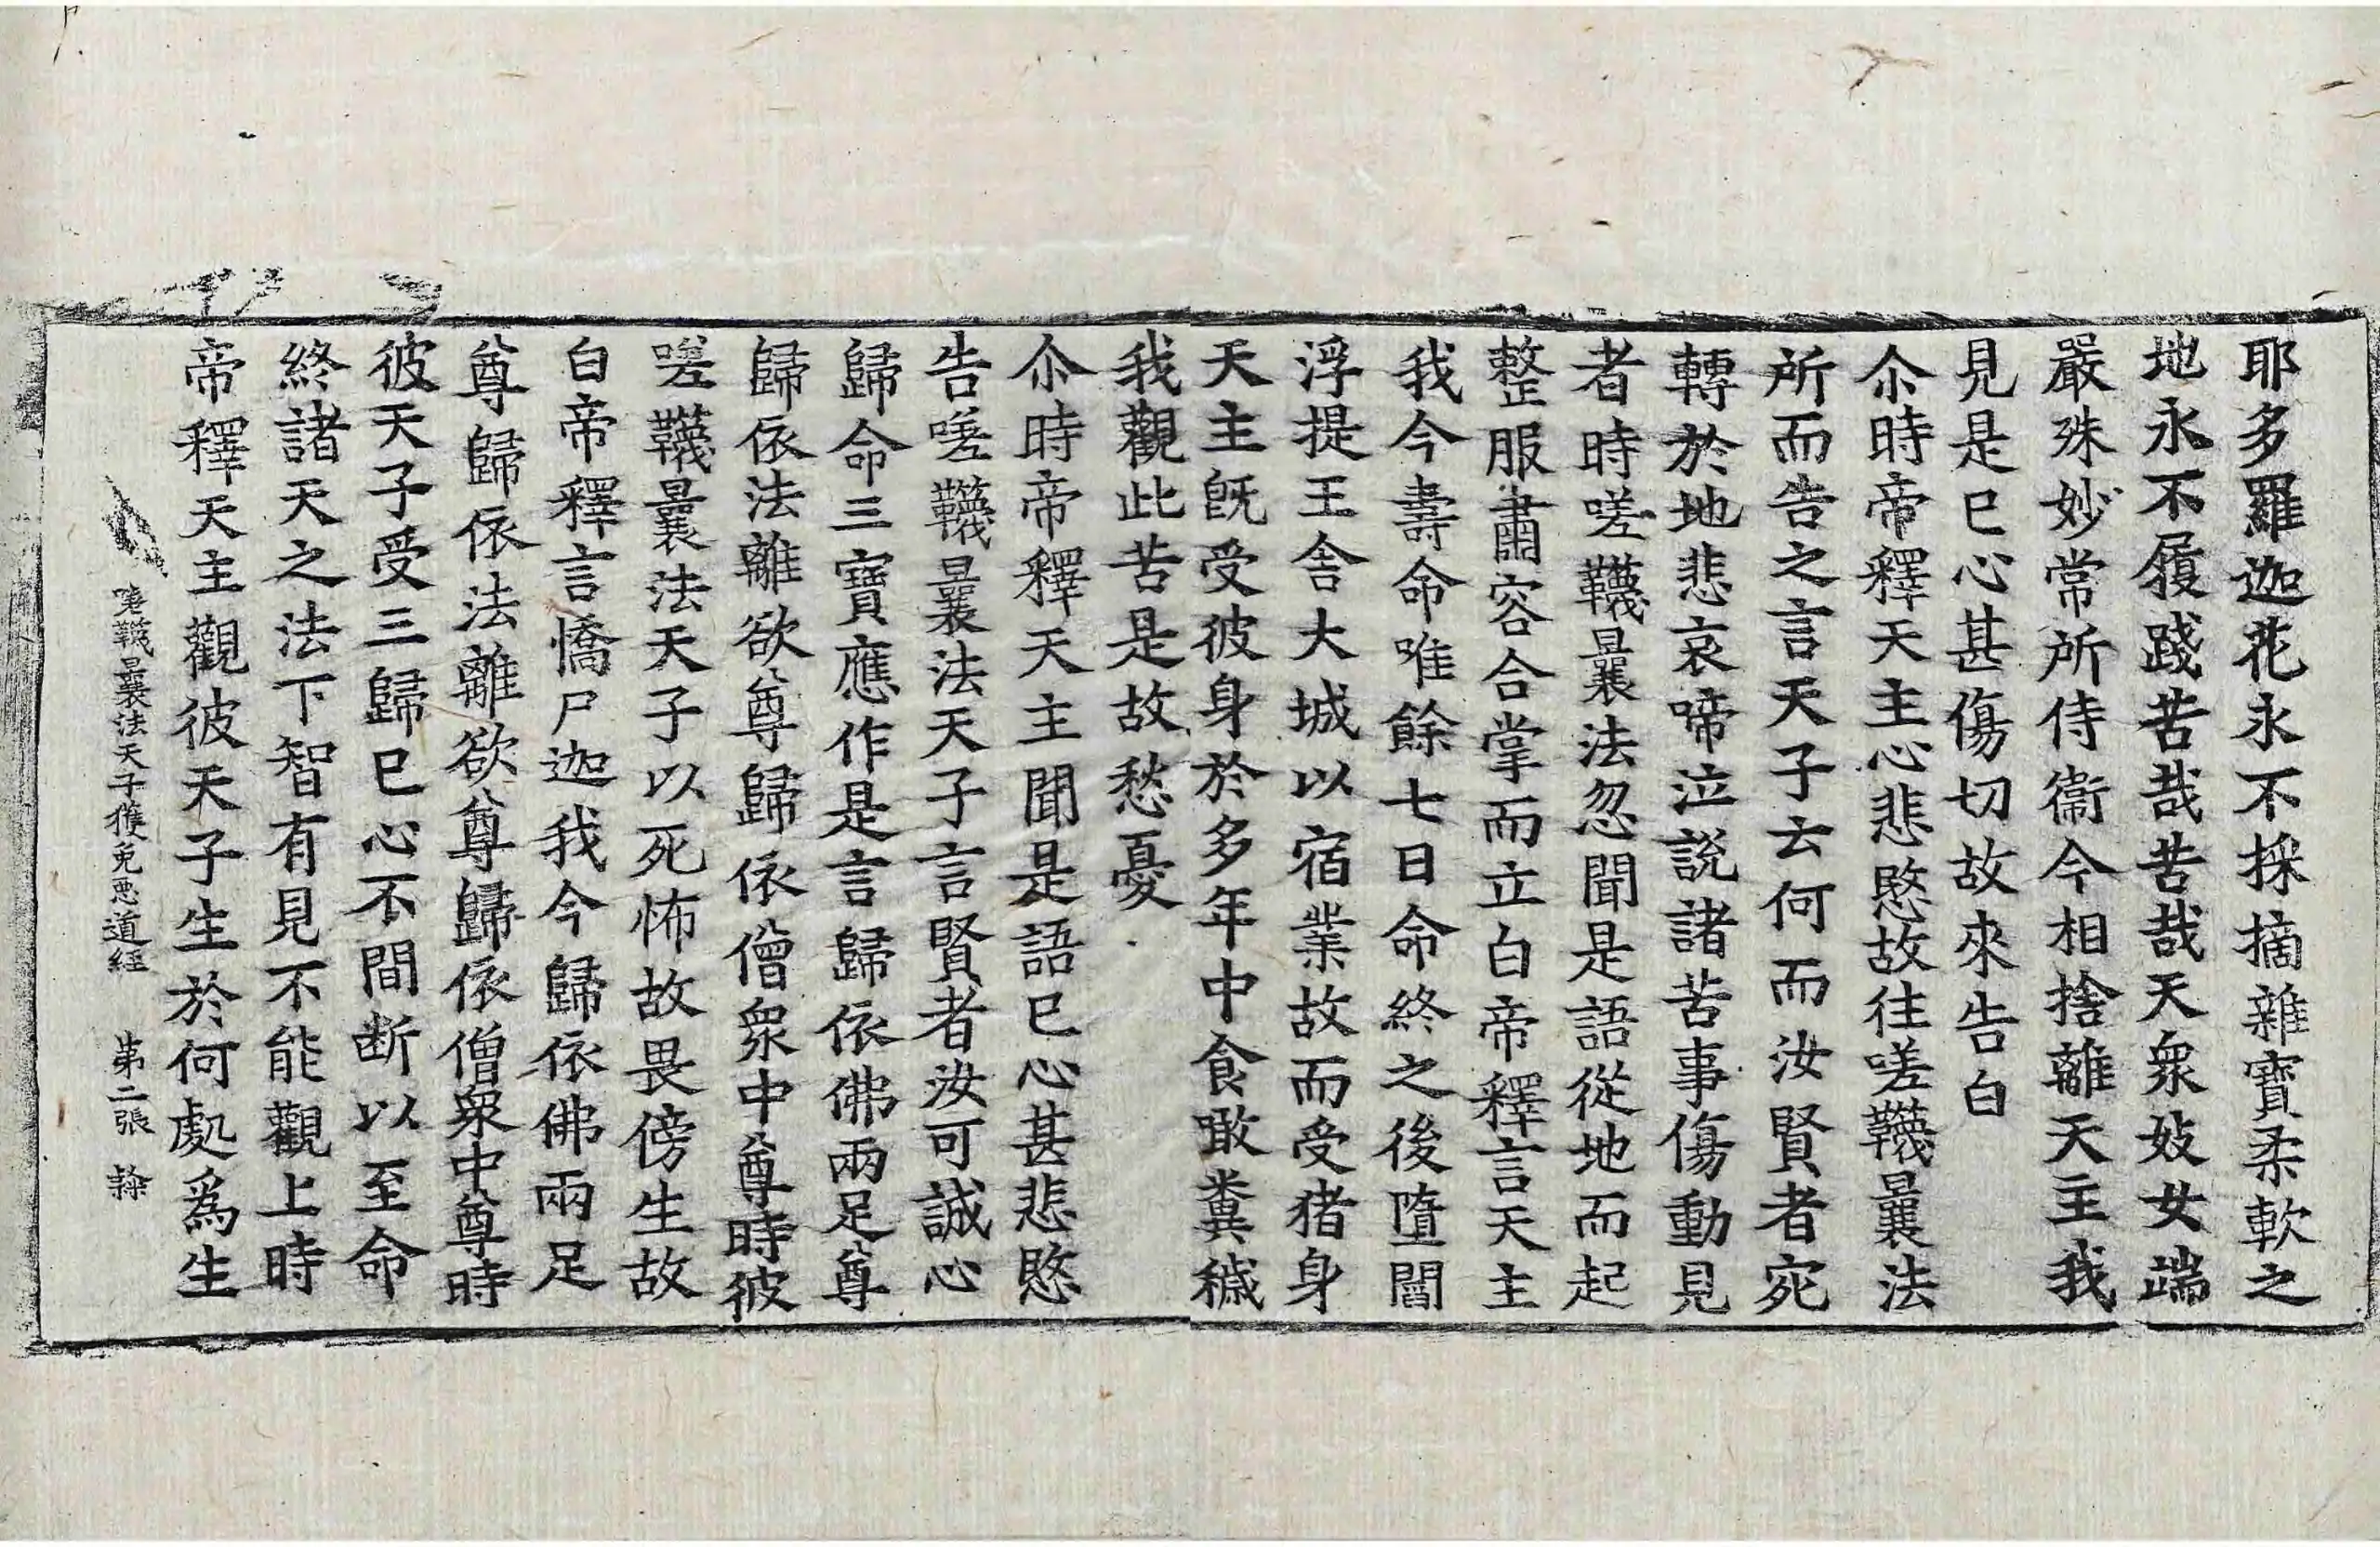 耶多羅迦花永不採摘雜寶柔軟之
地永不履踐苦哉苦哉天衆妓女端
嚴殊妙常所侍衞今相捨離天主我
見是已心甚傷切故來告白
尒時帝釋天主心悲愍故往嗟韈曩法
所而告之言天子云何而汝賢者宛
轉於地悲哀啼泣說諸苦事傷動見
者時嗟韈曩法忽聞是語從地而起
整服肅容合掌而立白帝釋言天主
我今壽命唯餘七日命終之後墮閻
浮提王舎大城以宿業故而受猪身
天主旣受彼身於多年中食噉糞穢
我觀此苦是故愁憂
尒時帝釋天主聞是語已心甚悲愍
告嗟韈曩法天子言賢者汝可誠心
歸命三寶應作是言歸依佛兩足尊
歸依法離欲尊歸依僧衆中尊時彼
嗟韈曩法天子以死怖故畏傍生故
白帝釋言憍尸迦我今歸依佛兩足
尊歸依法離欲尊歸依僧衆中尊時
彼天子受三歸已心不間断以至命
終諸天之法下智有見不能觀上時
帝釋天主觀彼天子生於何處爲生
嗟韈曩法天子獲免惡道經　第二張